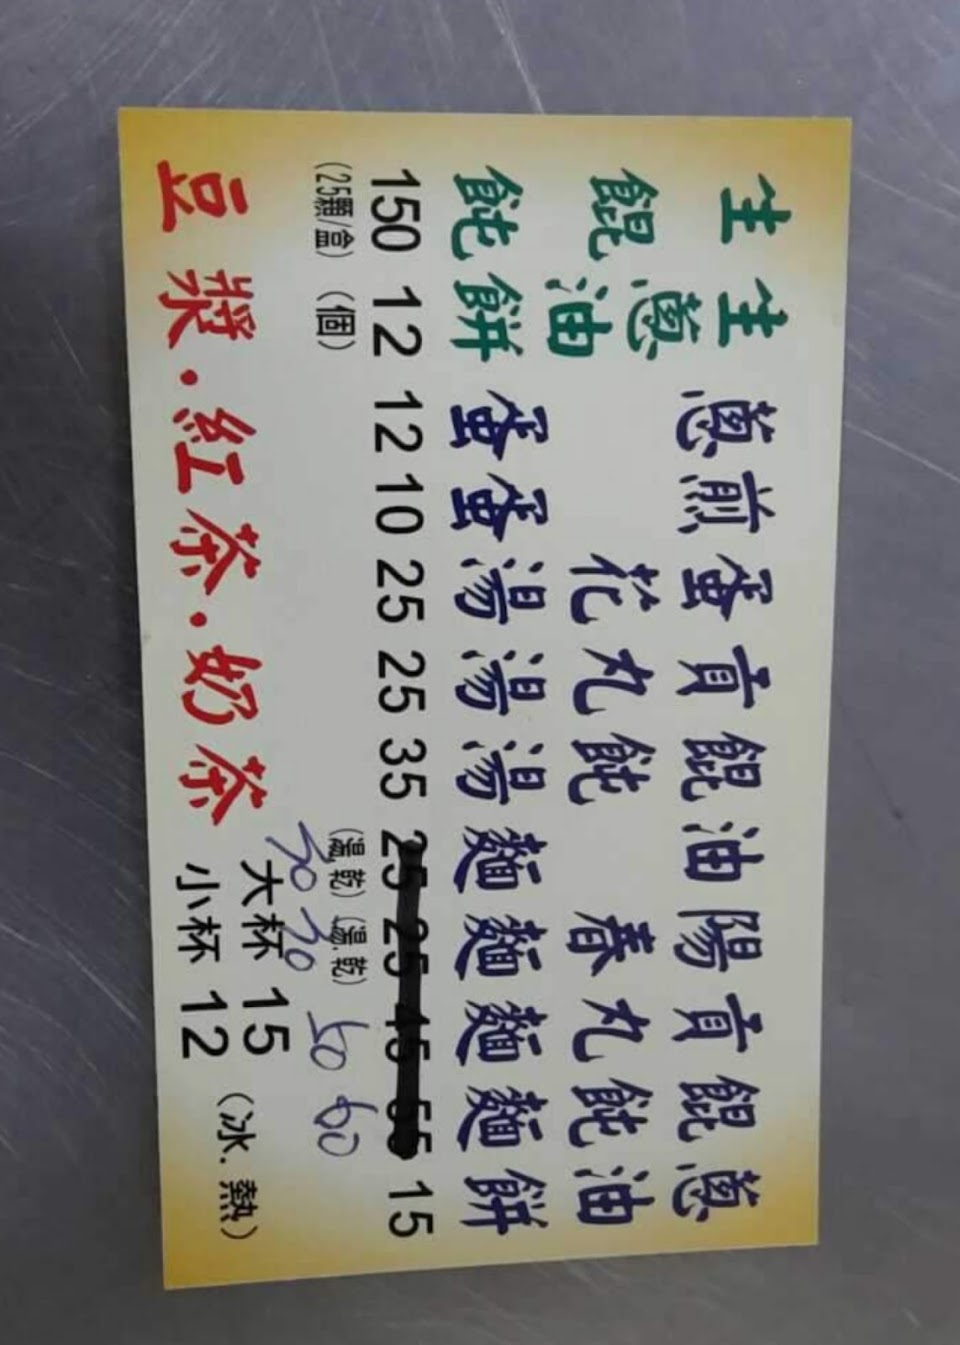 蔥油餅 15
餛飩麵 55 60
貢丸麵 45 50
陽春麵 25 (湯.乾) 30
油麵 25 (湯.乾) 30
餛飩湯 35
貢丸湯 25
蛋花湯 25
煎蛋 10
蔥蛋 12
生蔥油餅 12 (個)
生餛飩 150 (25顆/盒)
豆漿.紅茶.奶茶 大杯 15
小杯 12 (冰.熱)